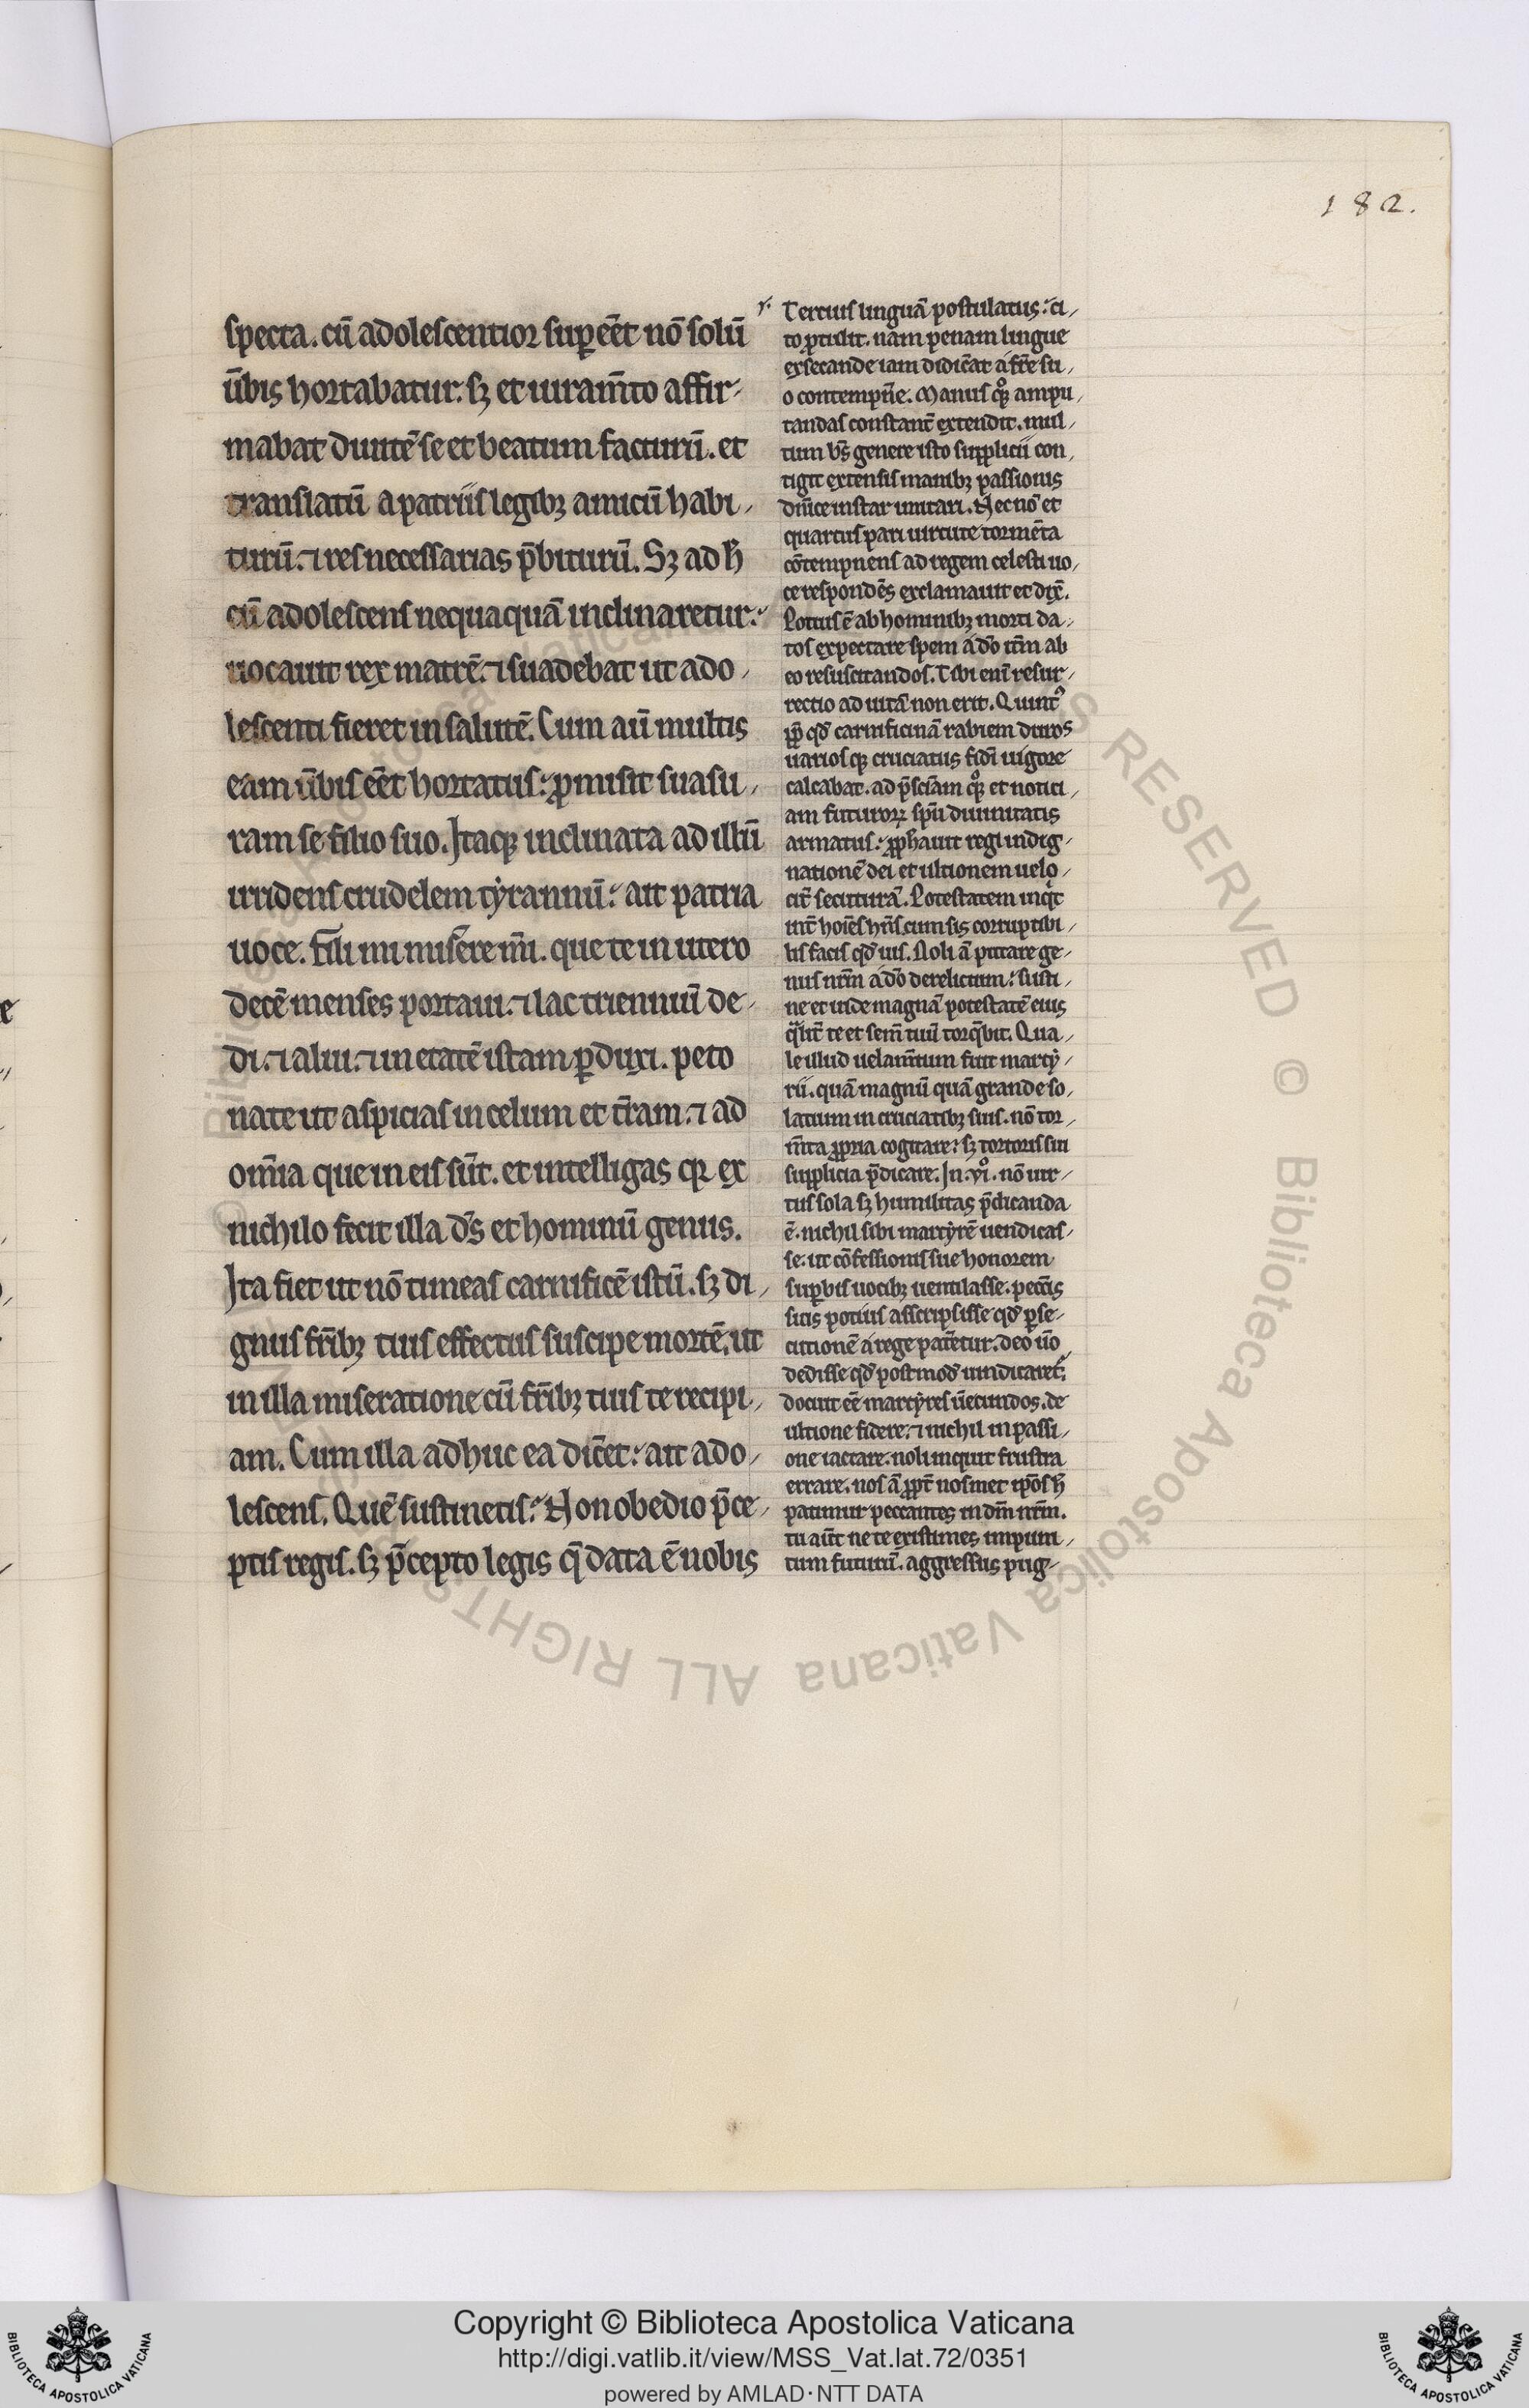 182.
specta. cū adolescentior supeēt nō solū
ūbis hortabatur. sꝫ et iuram̄to affir-
mabat diuitē se et beatum facturū. et
translatū a patriis legibꝫ amicū habi-
turū. ⁊ res necessarias p̄biturū. Sꝫ ad h̄
cū adolescens nequaquā inclinaretur.
uocauit rex matrē. ⁊ suadebat ut ado-
lescenti fieret in salutē. Cum aū multis
eam ūbis eēt hortatus. ꝓmisit suasu-
ram se filio suo. Itaqꝫ inclinata ad illū
irridens crudelem tyrannū. ait patria
uoce. Fili mi misere m̄i. que te in utero
decē menses portaui. ⁊ lac trienniū de-
di. ⁊ alui. ⁊ in etatē istam ꝑduxi. peto
nate ut aspicias in celum et t̄ram. ⁊ ad
om̄ia que in eis sūt. et intelligas qꝛ ex
nichilo fecit illa d̄s et hominū genus.
Ita fiet ut nō timeas carnificē istū. sꝫ di-
gnus fr̄ibꝫ tuis effectus suscipe mortē. ut
in illa miseratione cū fr̄ibꝫ tuis te recipi-
am. Cum illa adhuc ea dic̄et. ait ado-
lescens. Quē sustinetis. Non obedio p̄ce-
ptis regis. sꝫ p̄cepto legis q̄ data ē nobis
Tercius linguā postulatus. ci-
to ꝓtulit. nam penam lingue
exsecande iam didic̄at a fr̄e su-
o contempn̄e. Manus qꝫ ampu-
tandas constant̄ extendit. mul-
tum ūs genere isto supplicii con-
tigit extensis manibꝫ passionis
dn̄ice instar imitari. Nec nō et
quartus pari uirtute tormēta
cōtempnens ad regem celesti uo-
ce respondēs exclamauit et dix̄.
Potius ē ab hominibꝫ morti da-
tos expectare spem a dō itm̄ ab
eo resuscitandos. Tibi enī resur-
rectio ad uitā non erit. Quintꝰ
pp̄ qd̄ carnificinā rabiem duros
uariosqꝫ cruciatus fidī uigore
calcabat. ad p̄sciam qꝫ et notici-
am futuroꝝ sp̄u diuinitatis
armatus. ꝓph̄auit regi indig-
nationē dei et ultionem uelo-
cit̄ secuturā. Potestatem inq̇t
int̄ hoīes hn̄s. cum sis corruptibi-
lis facis qd̄ uis. Noli ā putare ge-
nus nr̄m a dō derelictum. susti-
ne et uide magnā potestatē eius
q̄lit̄ te et sem̄ tuū torq̄bit. Qua-
le illud uelam̄tum fuit marty-
rii. quā magnū quā grande so-
latium in cruciatibꝫ suis. nō tor-
m̄ta ꝓpria cogitare. sꝫ tortoris sui
supplicia p̄dicare. In .vi°. nō uir-
tus sola sꝫ humilitas p̄dicanda
ē. nichil sibi martyrē uendicas-
se. ut cōfessionis sue honorem
suꝑbis uocibꝫ uentilasse. pecc̄is
suis potius asscripsisse qd̄ ꝑse-
cutionē a rege pat̄etur. deo ūo
dedisse qd̄ postmod̄ uindicaret.
docuit eē martyres ūecundos. de
ultione fidere. ⁊ nichil in passi-
one iactare. noli inquit frustra
errare. nos ā ꝓpt̄ nosmet ip̄os h̄
patimur peccantes in dm̄ nr̄m.
tu aūt ne te existimes impuni-
tum futurū. aggressus pug-
© Biblioteca Apostolica Vaticana ALL RIGHTS RESERVED
Copyright © Biblioteca Apostolica Vaticana
http://digi.vatlib.it/view/MSS_Vat.lat.72/0351
powered by AMLAD·NTT DATA
BIBLIOTECA APOSTOLICA VATICANA
BIBLIOTECA APOSTOLICA VATICANA